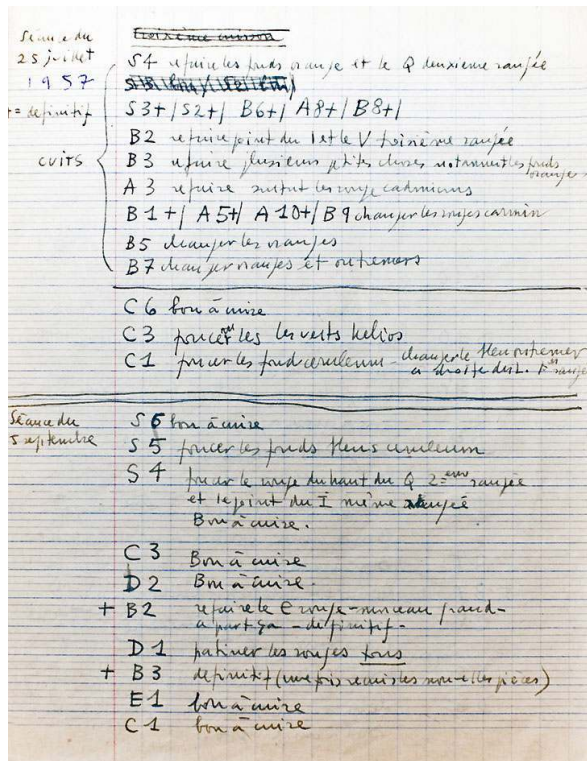 Troisième cuisson
Séance du
25 juillet
1957
+= definitif
cuits
S4 refaire les fonds orange et le Q deuxième rangée
S3+/ S2+/ B6+/ A8+/ B8+/
B2 refaire point du I et le V troisième rangée
B3 refaire plusieurs petites choses notamment les fonds
oranges
A3 refaire surtout les rouge cadmiums
B1+/ A5+/ A10+/ B9 changer les rouges carmin
B5 changer les oranges
B7 changer oranges et outremers
C6 bon à cuire
C3 poncer les verts helios
C1 poncer les fond ceruleum - changer le bleu outremer
a droite du L. 1er rangée
Séance du
5 septembre
S6 bon à cuire
S5 poncer les fonds bleus ceruleum
S4 poncer le rouge du haut du Q 2eme rangée
et le point du I même rangée
Bon à cuire.
C3 Bon à cuire
D2 Bon à cuire.
+ B2 refaire le e rouge-morceau grand-
a part ça - definitif -
D1 patiner les rouges tous
+ B3 definitif (une fois remis les nouvelles pièces)
E1 bon à cuire
C1 bon à cuire